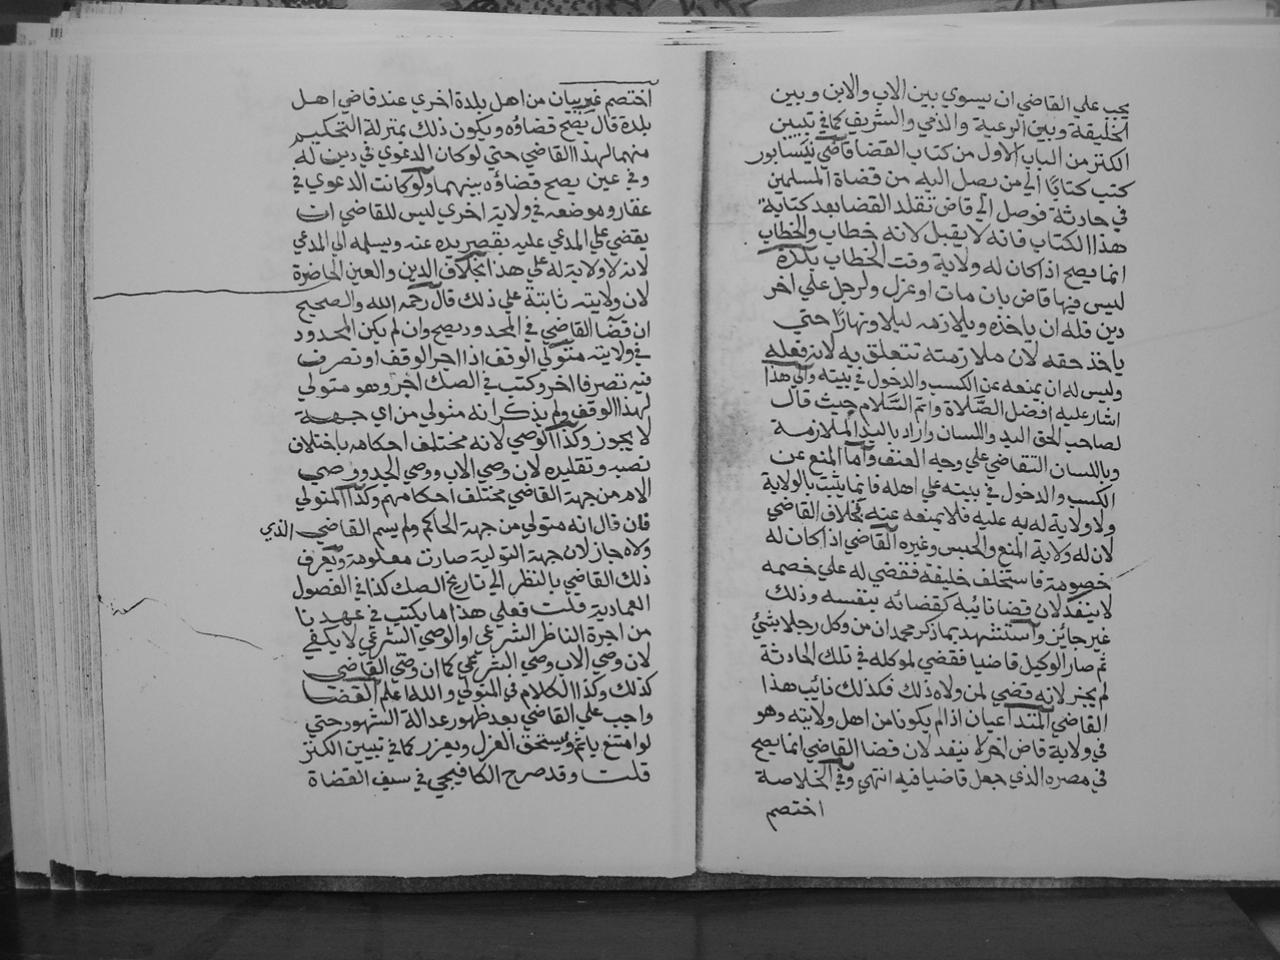 يجب علي القاضي ان يسوي بين الاب والابن وبين
الخليفة وبين الرعية والذمي والشريف كما في تبيين
الكنز من الباب الاول من كتاب القضا قاضي نيسابور
كتب كتابا الي من يصل اليه من قضاة المسلمين
في حادثة فوصل الي قاض تقلد القضا بعد كتابة
هذا الكتاب فانه لا يقبل لانه خطاب والخطاب
انما يصح اذا كان له ولاية وقت الخطاب بلدة
ليس فيها قاض بان مات او عزل ولرجل علي اخر
دين فله ان ياخذه ويلازمه ليلا ونهارا حتي
ياخذ حقه لان ملازمته تتعلق به لانه فعله
وليس له ان يمنعه عن الكسب والدخول في بيته والي هذا
اشار عليه افضل الصلاة واتم السلام حيث قال
لصاحب الحق اليد واللسان واراد باليد الملازمة
وباللسان التقاضي علي وجه العنف واما المنع عن
الكسب والدخول في بيته علي اهله فانما يثبت بالولاية
ولا ولاية له به عليه فلا يمنعه عنه بخلاف القاضي
لان له ولاية المنع والحبس وغيره القاضي اذا كان له
خصومة فاستخلف خليفة فقضي له علي خصمه
لا ينفذ لان قضا نائبه كقضائه بنفسه وذلك
غير جائز واستشهد بما ذكر محمد ان من وكل رجلا بشئ
ثم صار الوكيل قاضيا فقضي لموكله في تلك الحادثة
لم يجز لانه قضي لمن ولاه ذلك فكذلك نائب هذا
القاضي المتداعيان اذا لم يكونا من اهل ولايته وهو
في ولاية قاض اخر لا ينفد لان قضا القاضي انما يصح
في مصره الذي جعل قاضيا فيه انتهي وفي الخلاصة
اختصم
اختصم غريبان من اهل بلدة اخري عند قاضي اهل
بلدة قال يصح قضاؤه ويكون ذلك بمنزلة التحكيم
منهما لهذا القاضي حتي لو كان الدعوي في دين له
وفي عين يصح قضاؤه بينهما ولو كانت الدعوي في
عقار وموضعه في ولاية اخري ليس للقاضي ان
يقضي علي المدعي عليه بقصر يده عنه ويسلمه الي المدعي
لانه لا ولاية له علي هذا بخلاف الدين والعين الحاضرة
لان ولايته ثابتة علي ذلك قال رحمه الله والصحيح
ان قضا القاضي في المحدود يصح وان لم يكن المحدود
في ولايته متولي الوقف اذا اجر الوقف او تصرف
فيه تصرفا اخر وكتب في الصك اجر وهو متولي
لهذا الوقف ولم يذكر انه متولي من اي جهة
لا يجوز وكذا الوصي لانه مختلف احكامه باختلاف
نصبه وتقليده لان وصي الاب ووصي الجد ووصي
الام من جهة القاضي مختلف احكامهم وكذا المتولي
فان قال انه متولي من جهة الحاكم ولم يسم القاضي الذي
ولاه جاز لان جهة التولية صارت معلومة ويعرف
ذلك القاضي بالنظر الي تاريخ الصك كذا في الفصول
العمادية قلت فعلي هذا ما يكتب في عهدنا
من اجرة الناظر الشرعي او الوصي الشرعي لا يكفي
لان وصي الاب وصي الشرعي كما ان وصي القاضي
كذلك وكذا الكلام في المتولي والله اعلم القضا
واجب علي القاضي بعد ظهور عدالة الشهور حتي
لو امتنع ياثم ويستحق العزل ويعزر كما في تبيين الكنز
قلت وقد صرح الكافيجي في سيف القضاة